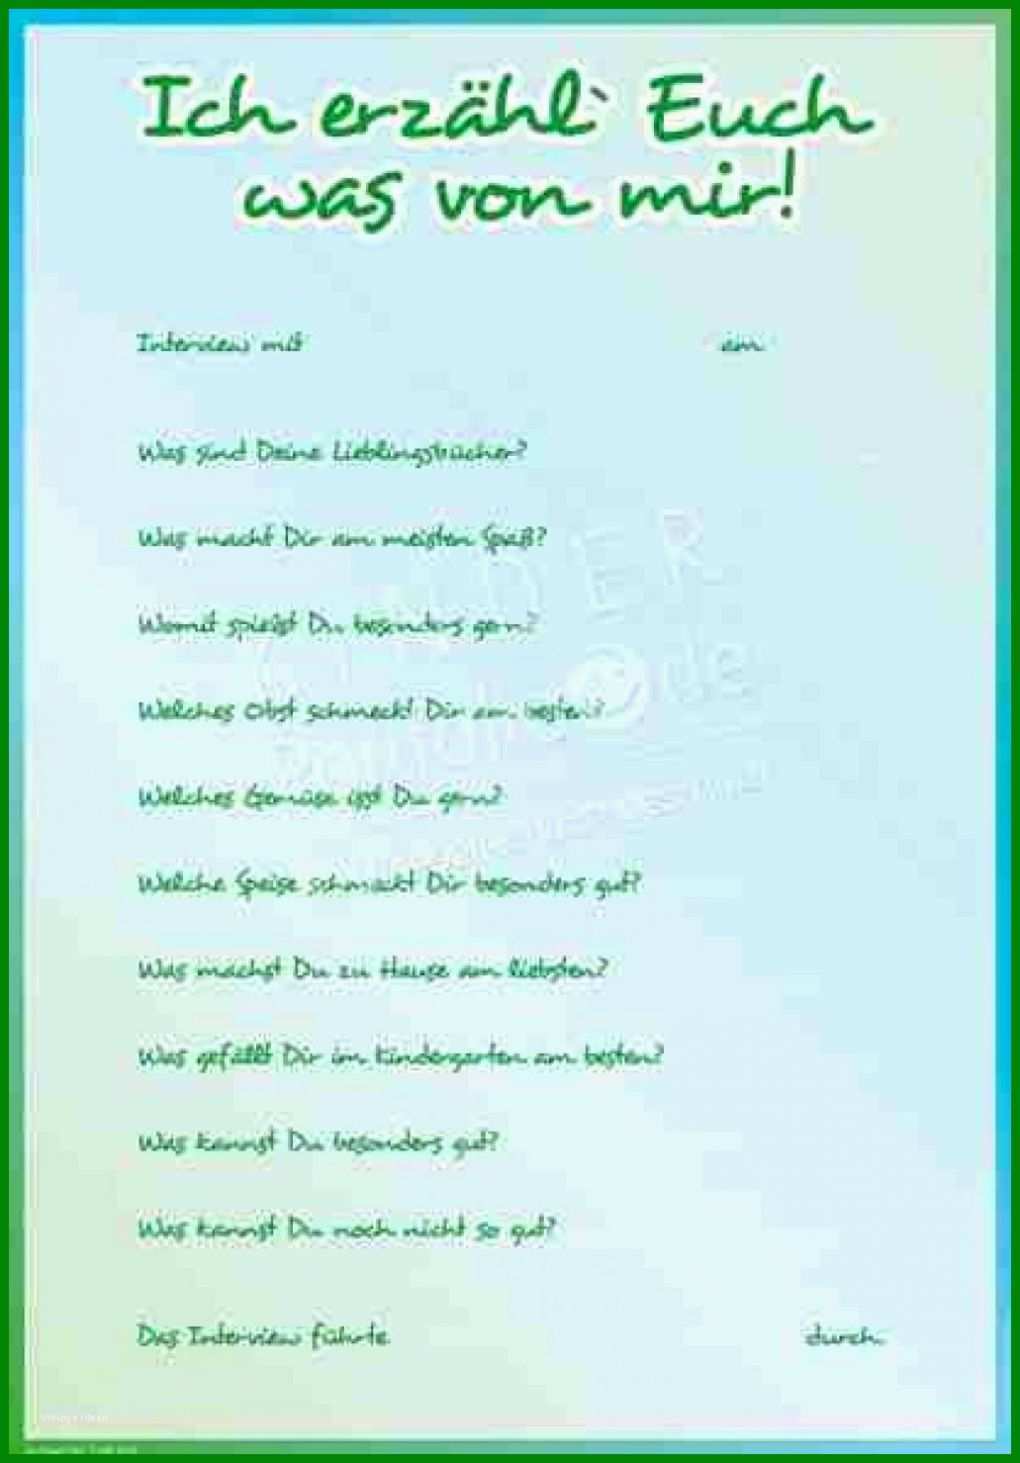 Ich erzähl` Euch
was von mir!
Interview mit am
Was sind Deine Lieblingsbücher?
Was macht Dir am meisten Spaß?
Womit spielst Du besonders gern?
Welches Obst schmeckt Dir am besten?
Welches Gemüse isst Du gern?
Welche Speise schmeckt Dir besonders gut?
Was machst Du zu Hause am liebsten?
Was gefällt Dir im Kindergarten am besten?
Was kannst Du besonders gut?
Was kannst Du noch nicht so gut?
Das Interview führte durch.